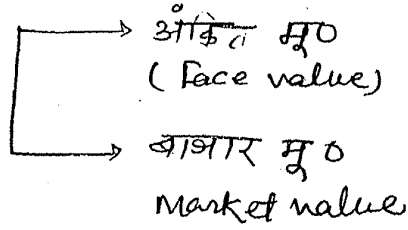 अंकित मू०
(Face value)
बाजार मू०
Market value